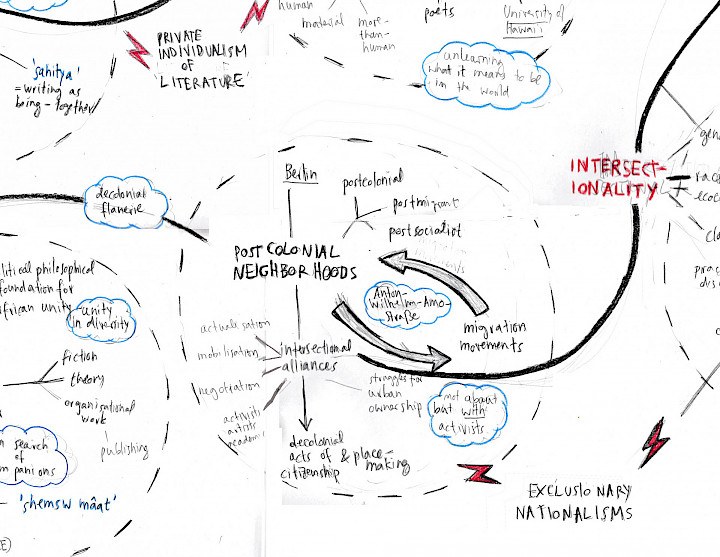 human
material
more-
than-
human
poets
University of
Hawai'i
PRIVATE
INDIVIDUALISM
OF
'LITERATURE'
'sahitya'
= writing as
being-together
unlearning
what it means to be
in the world
INTERSECT-
IONALITY
gen
race
ecoc
cla
prac
dis
decolonial
flanerie
Berlin
postcolonial
postmigrant
postsocialist
POSTCOLONIAL
NEIGHBORHOODS
Anton-
Wilhelm-Amo-
Straße
migration
movements
litical philosophical
foundation for
African unity
unity
in diversity
fiction
theory
organisational
work
publishing
n search
of
mpanions
'shemsw mâat'
E)
actualisation
mobilisation
negotiation
activists
artists
academics
intersectional
alliances
struggles for
urban
ownership
not about
but with
activists
decolonial
acts of & place-
citizenship making
EXCLUSIONARY
NATIONALISMS